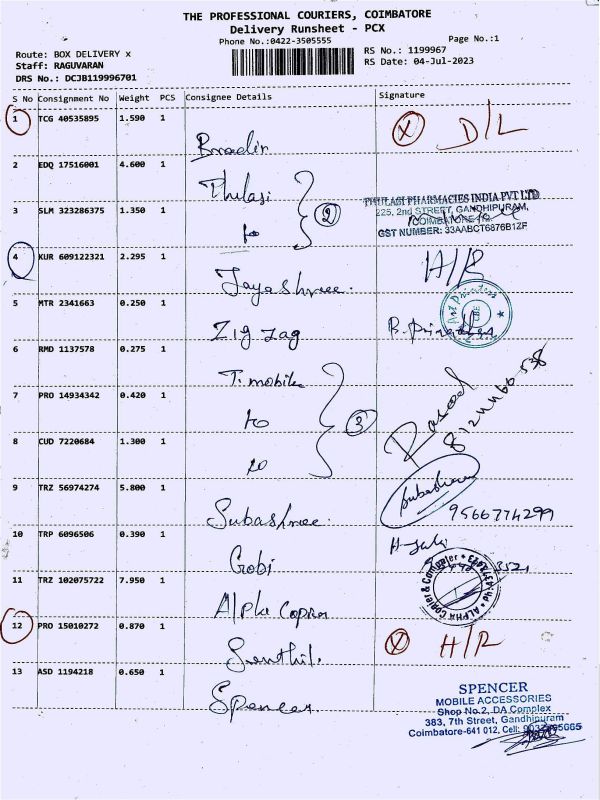 THE PROFESSIONAL COURIERS, COIMBATORE
Delivery Runsheet - PCX
Phone No.:0422-3505555
Page No.:1
Route: BOX DELIVERY x
RS No.: 1199967
Staff: RAGUVARAN
RS Date: 04-Jul-2023
DRS No.: DCJB119996701
S No Consignment No Weight PCS Consignee Details Signature
1 TCG 40535895 1.590 1 X D/L
2 EDQ 17516001 4.600 1 Thulasi
2
THULASI PHARMACIES INDIA PVT LTD
225, 2nd STREET, GANDHIPURAM,
COIMBATORE
GST NUMBER: 33AABCT6876B1ZF
3 SLM 323286375 1.350 1 to
4 KUR 609122321 2.295 1 Jayashree. H/R
5 MTR 2341663 0.250 1 Zig zag
6 RMD 1137578 0.275 1 T. mobile
7 PRO 14934342 0.420 1 to 3
8124466538
8 CUD 7220684 1.300 1
9 TRZ 56974274 5.800 1 Subashree. 9566774299
10 TRP 6096506 0.390 1 Gobi
11 TRZ 102075722 7.950 1 Alpha
12 PRO 15010272 0.870 1 Senthil. X H/R
13 ASD 1194218 0.650 1 Spencer
SPENCER
MOBILE ACCESSORIES
Shop No.2, DA Complex
383, 7th Street, Gandhipuram
Coimbatore-641 012, Cell: